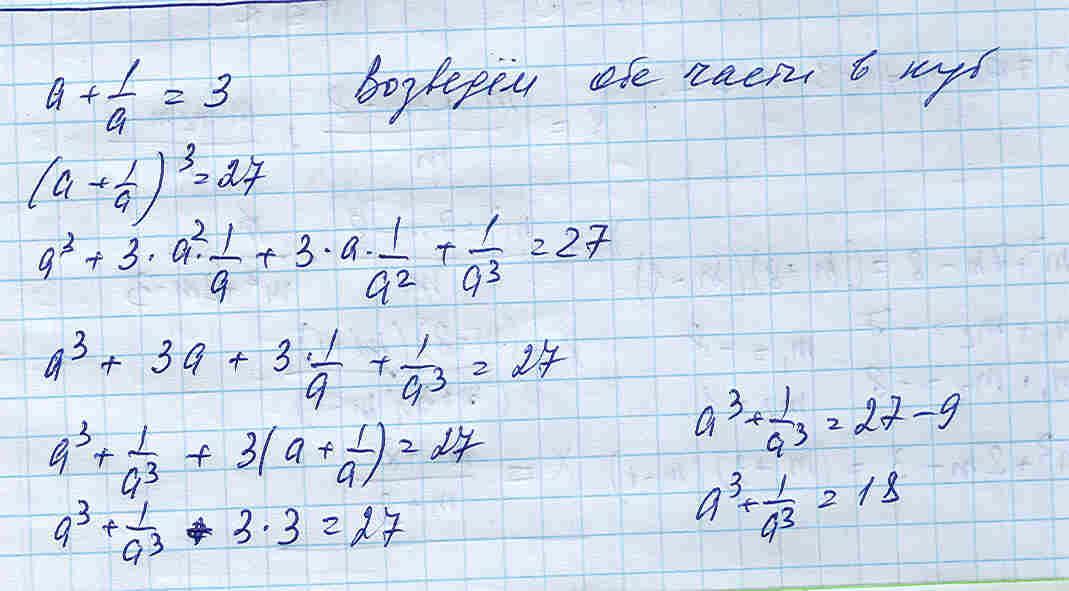 a + 1/a = 3 Возведём обе части в куб
(a + 1/a)³ = 27
a³ + 3 · a² · 1/a + 3 · a · 1/a² + 1/a³ = 27
a³ + 3a + 3 · 1/a + 1/a³ = 27
a³ + 1/a³ + 3(a + 1/a) = 27
a³ + 1/a³ + 3 · 3 = 27
a³ + 1/a³ = 27 - 9
a³ + 1/a³ = 18